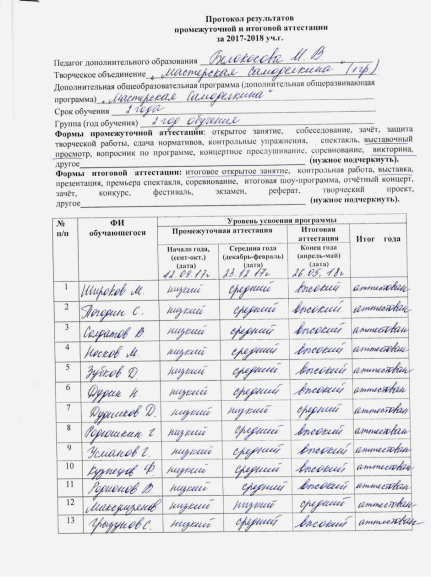 Протокол результатов
промежуточной и итоговой аттестации
за 2017-2018 уч.г.
Педагог дополнительного образования Белокосова М. В
Творческое объединение „Мастерская Самоделкина" (1 гр)
Дополнительная общеобразовательная программа (дополнительная общеразвивающая
программа) „Мастерская Самоделкина"
Срок обучения 2 года
Группа (год обучения) 2 год обучения
Формы промежуточной аттестации: открытое занятие, собеседование, зачёт, защита
творческой работы, сдача нормативов, контрольные упражнения, спектакль, выставочный
просмотр, вопросник по программе, концертное прослушивание, соревнование, викторина,
другое (нужное подчеркнуть).
Формы итоговой аттестации: итоговое открытое занятие, контрольная работа, выставка,
презентация, премьера спектакля, соревнование, итоговая шоу-программа, отчётный концерт,
зачёт, конкурс, фестиваль, экзамен, реферат, творческий проект,
другое (нужное подчеркнуть).
№ п/п ФИ обучающегося Уровень усвоения программы
Промежуточная аттестация Итоговая аттестация Итог года
Начало года, (сент-окт.) (дата) Середина года (декабрь-февраль) (дата) Конец года (апрель-май) (дата)
12.09.17г. 23.12.17г. 26.05.18г.
1 Широков М. низкий средний высокий аттестован
2 Погодин С. низкий средний высокий аттестован
3 Солдатов В. низкий средний высокий аттестован
4 Носков М. низкий средний высокий аттестован
5 Зубков Д. низкий средний высокий аттестован
6 Дудин Н низкий средний высокий аттестован
7 Дудников Д. низкий низкий средний аттестован
8 Родюшкин Г. низкий средний высокий аттестован
9 Усманов Г. низкий средний высокий аттестован
10 Кузнецов Ф низкий средний высокий аттестован
11 Родионов В низкий средний высокий аттестован
12 низкий низкий средний аттестован
13 Грызунов С. низкий средний высокий аттестован